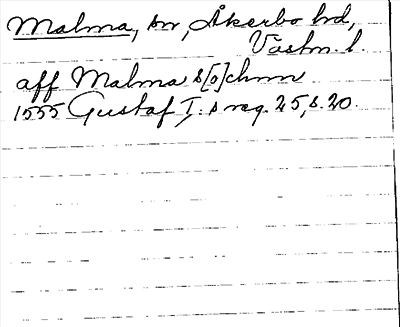 Malma, sn, Åkerbo hd,
Västm. l.
aff Malma s[o]chnn
1555 Gustaf I:s reg. 25, s. 20.